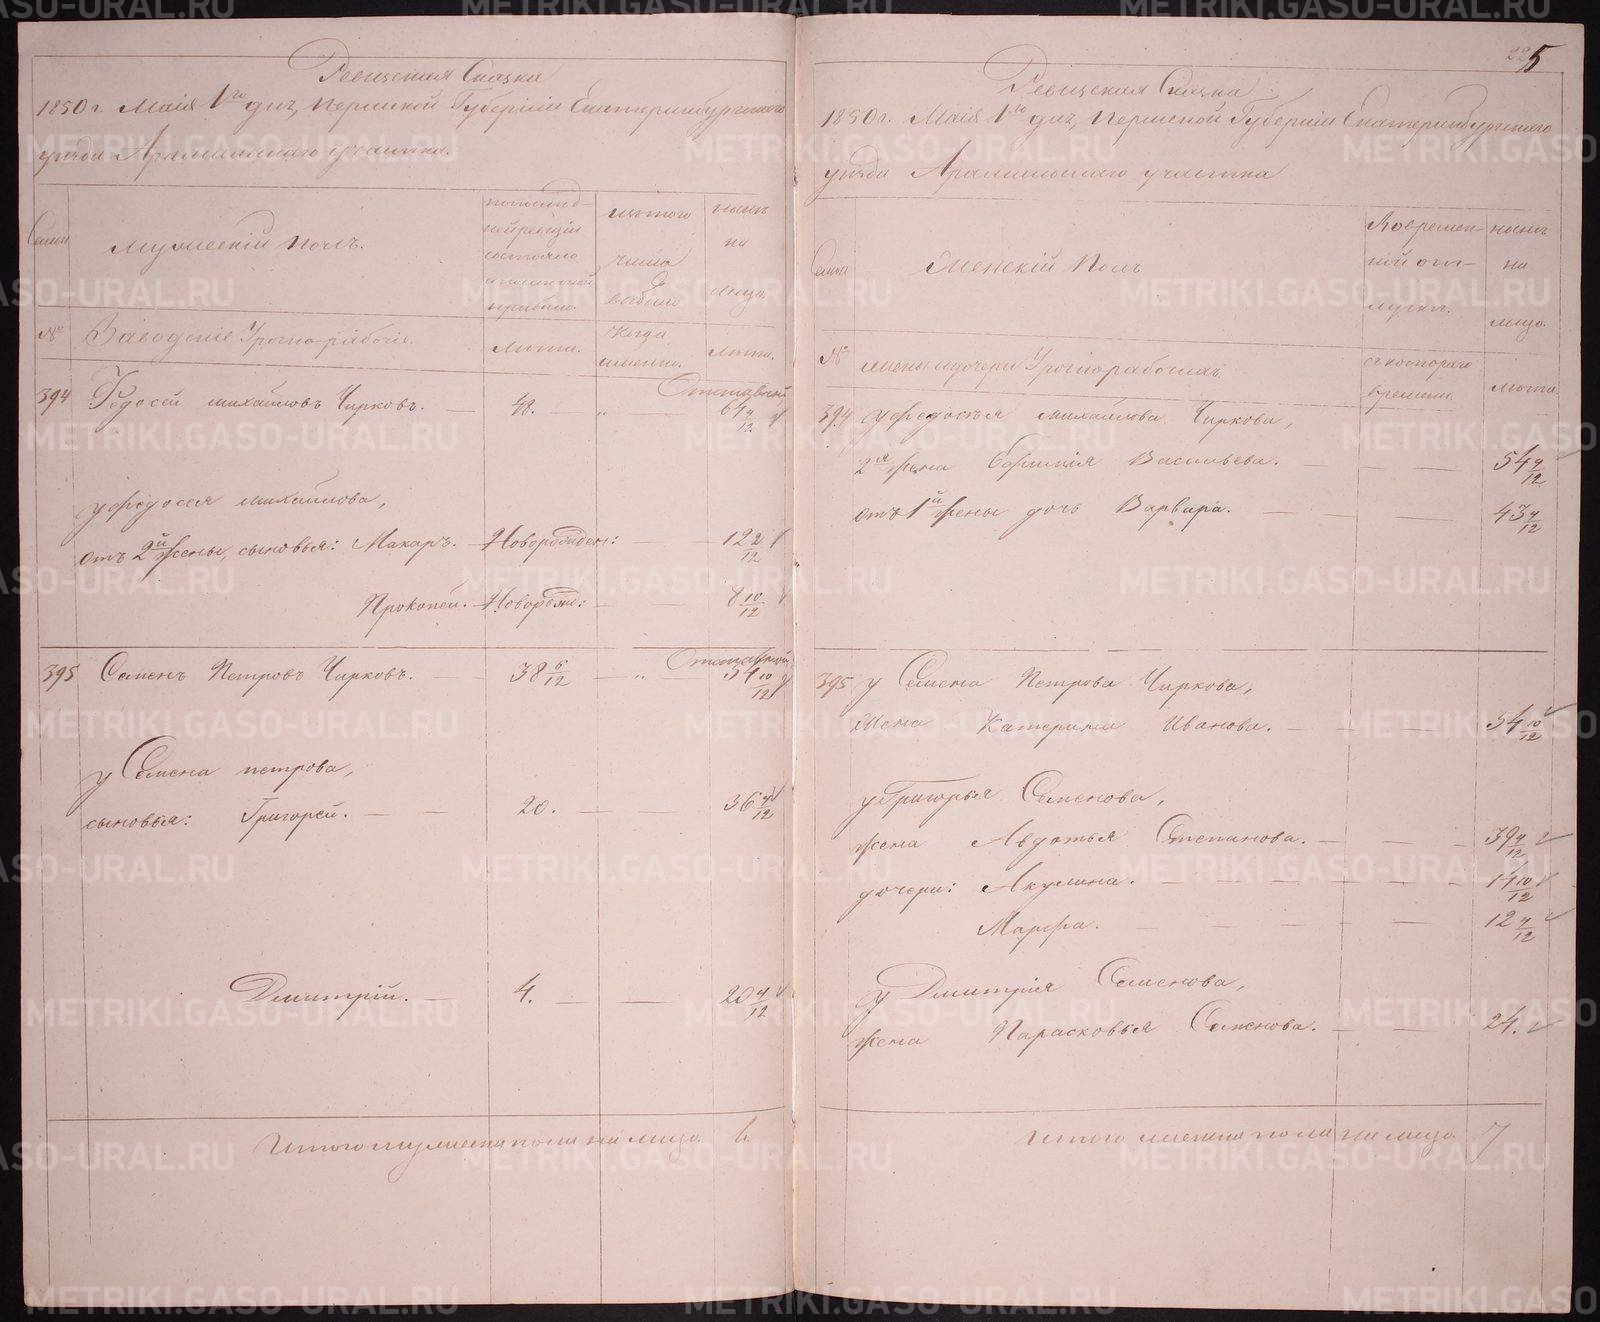 225
Ревизская Сказка
1850 г. Маiя 1го дня, Пермской Губернiи Екатеринбургскаго
уѣзда Арамильскаго участка.
Семьи
Мужескiй Полъ.
по послед-
ней ревизiи
состояло
и после оной
прибыло.
изъ того
числа
выбыло
нынѣ
на
лицо.
№
Заводскiе Урочно-рабочiе.
Лѣта.
Когда
именно.
Лѣта.
394 Федосей Михайловъ Чирковъ. — 48. — „ — Отставной 64 4/12
у Федосея Михайлова,
отъ 2й жены, сыновья: Макаръ. — Новорожден: — 12 2/12
Прокопей. — Новорожд: — 8 10/12
395 Семенъ Петровъ Чирковъ. — 38 6/12 — „ Отставной 54 10/12
у Семена Петрова,
сыновья: Григорей. — — 20. — — 36 4/12
Дмитрiй. — 4. — — 20 4/12
Итого мужеска пола на лицо 6.
Ревизская Сказка
1850 г. Маiя 1го дня, Пермской Губернiи Екатеринбургскаго
уѣзда Арамильскаго участка
Семьи
Женскiй Полъ
Во времен-
ной от-
лучкѣ.
нынѣ
на
лицо.
№
жены и дочери Урочнорабочихъ
съ котораго
времени.
Лѣта.
394 у Федосея Михайлова Чиркова,
2я жена Ефимiя Васильева. — — — 54 4/12
отъ 1й жены дочь Варвара. — — — 43 4/12
395 у Семена Петрова Чиркова,
жена Катерина Иванова. — — — 54 10/12
у Григорья Семенова,
жена Авдотья Степанова. — — — 39 4/12
дочери: Акулина. — — — 14 10/12
Марфа. — — — 12 4/12
у Дмитрiя Семенова,
жена Парасковья Семенова. — — 24.
Итого женска пола на лицо 7
METRIKI.GASO-URAL.RU